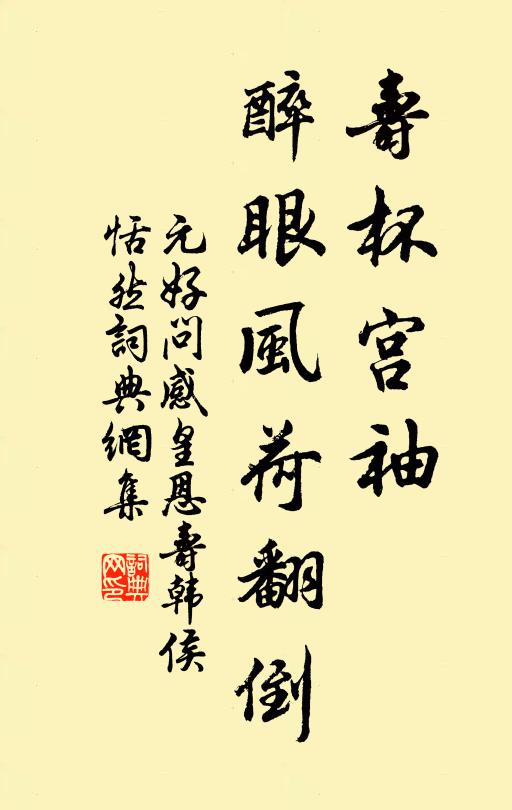 壽杯宮袖
醉眼風荷翻倒
元好問感皇恩壽韩侯
恬然詞典網集
詞典网印